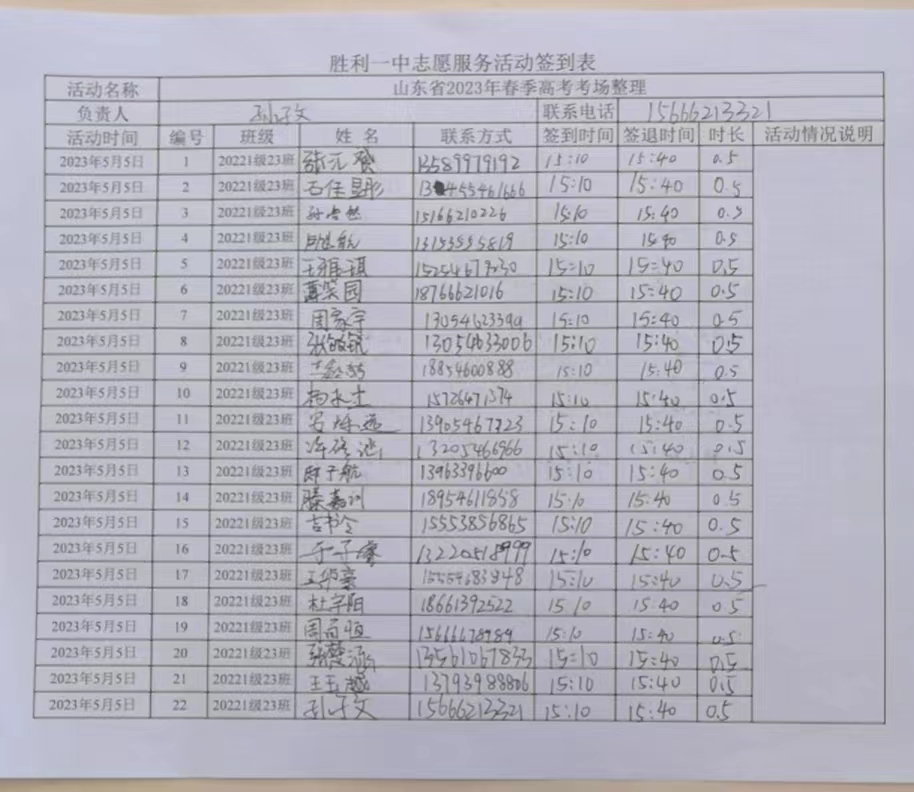 胜利一中志愿服务活动签到表
活动名称 山东省2023年春季高考考场整理
负责人 孙子文 联系电话 15666213321
活动时间 编号 班级 姓名 联系方式 签到时间 签退时间 时长 活动情况说明
2023年5月5日 1 20221级23班 张元盛 13589979192 15:10 15:40 0.5
2023年5月5日 2 20221级23班 15:10 15:40 0.5
2023年5月5日 3 20221级23班 15166210226 15:10 15:40 0.5
2023年5月5日 4 20221级23班 13153555819 15:10 15:40 0.5
2023年5月5日 5 20221级23班 王雅琪 15:10 15:40 0.5
2023年5月5日 6 20221级23班 18766621016 15:10 15:40 0.5
2023年5月5日 7 20221级23班 周家宇 15:10 15:40 0.5
2023年5月5日 8 20221级23班 13054633006 15:10 15:40 0.5
2023年5月5日 9 20221级23班 18854600888 15:10 15:40 0.5
2023年5月5日 10 20221级23班 15726471374 15:10 15:40 0.5
2023年5月5日 11 20221级23班 15:10 15:40 0.5
2023年5月5日 12 20221级23班 13205466966 15:10 15:40 0.5
2023年5月5日 13 20221级23班 13963396600 15:10 15:40 0.5
2023年5月5日 14 20221级23班 18954611858 15:10 15:40 0.5
2023年5月5日 15 20221级23班 15553856865 15:10 15:40 0.5
2023年5月5日 16 20221级23班 于子睿 13220518999 15:10 15:40 0.5
2023年5月5日 17 20221级23班 15:10 15:40 0.5
2023年5月5日 18 20221级23班 杜宇阳 18661392522 15:10 15:40 0.5
2023年5月5日 19 20221级23班 周百恒 15666678989 15:10 15:40 0.5
2023年5月5日 20 20221级23班 张楚涵 13561067833 15:10 15:40 0.5
2023年5月5日 21 20221级23班 王玉越 13793988806 15:10 15:40 0.5
2023年5月5日 22 20221级23班 孙子文 15666213321 15:10 15:40 0.5